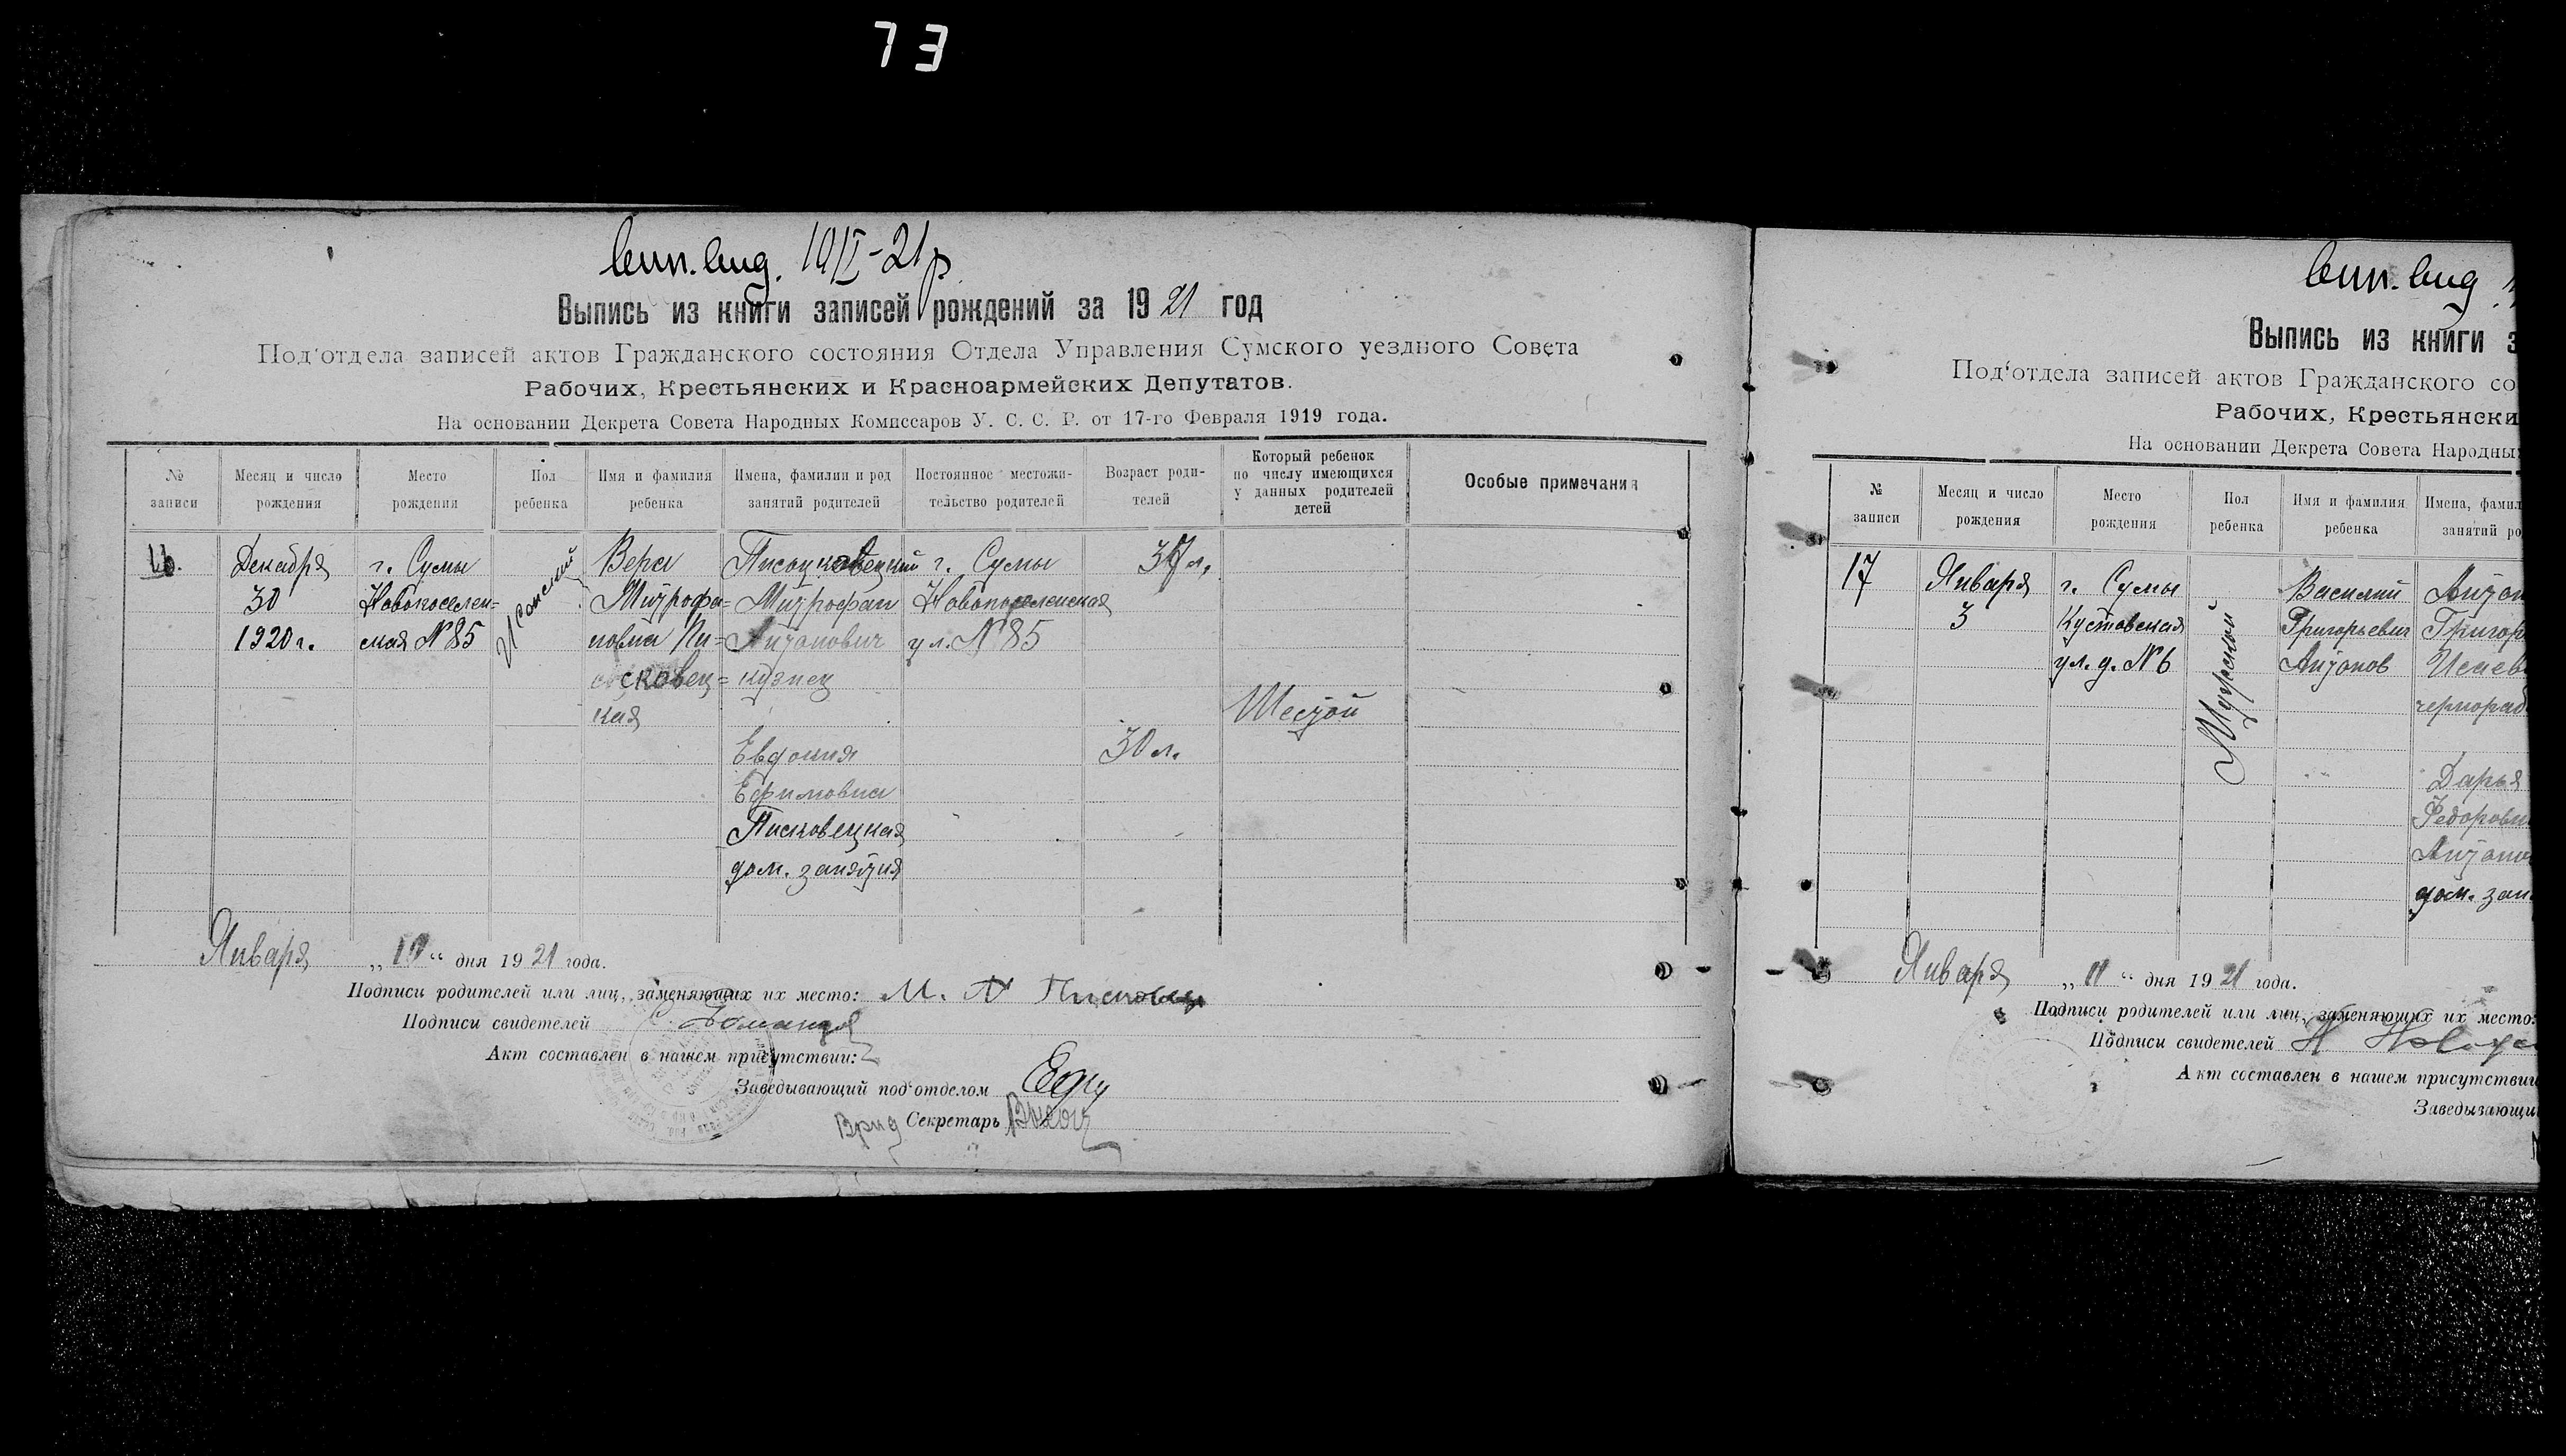 73
19/I-21р
Выпись из книги записей рождений за 1921 год
Под'отдела записей актов Гражданского состояния Отдела Управления Сумского уездного Совета
Рабочих, Крестьянских и Красноармейских Депутатов.
На основании Декрета Совета Народных Комиссаров У. С. С. Р. от 17-го Февраля 1919 года.
№ записи
Месяц и число рождения
Место рождения
Пол ребенка
Имя и фамилия ребенка
Имена, фамилии и род занятий родителей
Постоянное местожительство родителей
Возраст родителей
Который ребенок по числу имеющихся у данных родителей детей
Особые примечания
16.
Декабря
30
1920 г.
г. Сумы
Новопоселен=
ская №85
Женский
Вера
Митрофа=
новна Пи=
сковец=
кая
Митрофан
Антонович
кузнец
Евдокия
Ефимовна
Писковецкая
дом. занятия
г. Сумы
Новопоселенская
ул. №85
30 л.
Шестой
Января „10“ дня 1921 года.
Подписи родителей или лиц, заменяющих их место: М. А
Подписи свидетелей
Акт составлен в нашем присутствии:
Заведывающий под'отделом
Врид Секретарь
Выпись из книги з
Под'отдела записей актов Гражданского со
Рабочих, Крестьянски
На основании Декрета Совета Народны
№ записи
Месяц и число рождения
Место рождения
Пол ребенка
Имя и фамилия ребенка
Имена, фамил
занятий ро
17
Января
3
г. Сумы
Кустовская
ул. д. №6
Мужской
Василий
Григорьевич
Антонов
Антон
Григор
Исаев
чернораб
Дарья
Федоровн
Антоно
дом. зан
Января „11“ дня 1921 года.
Подписи родителей или лиц, заменяющих их место:
Подписи свидетелей Н
Акт составлен в нашем присутствии
Заведывающи